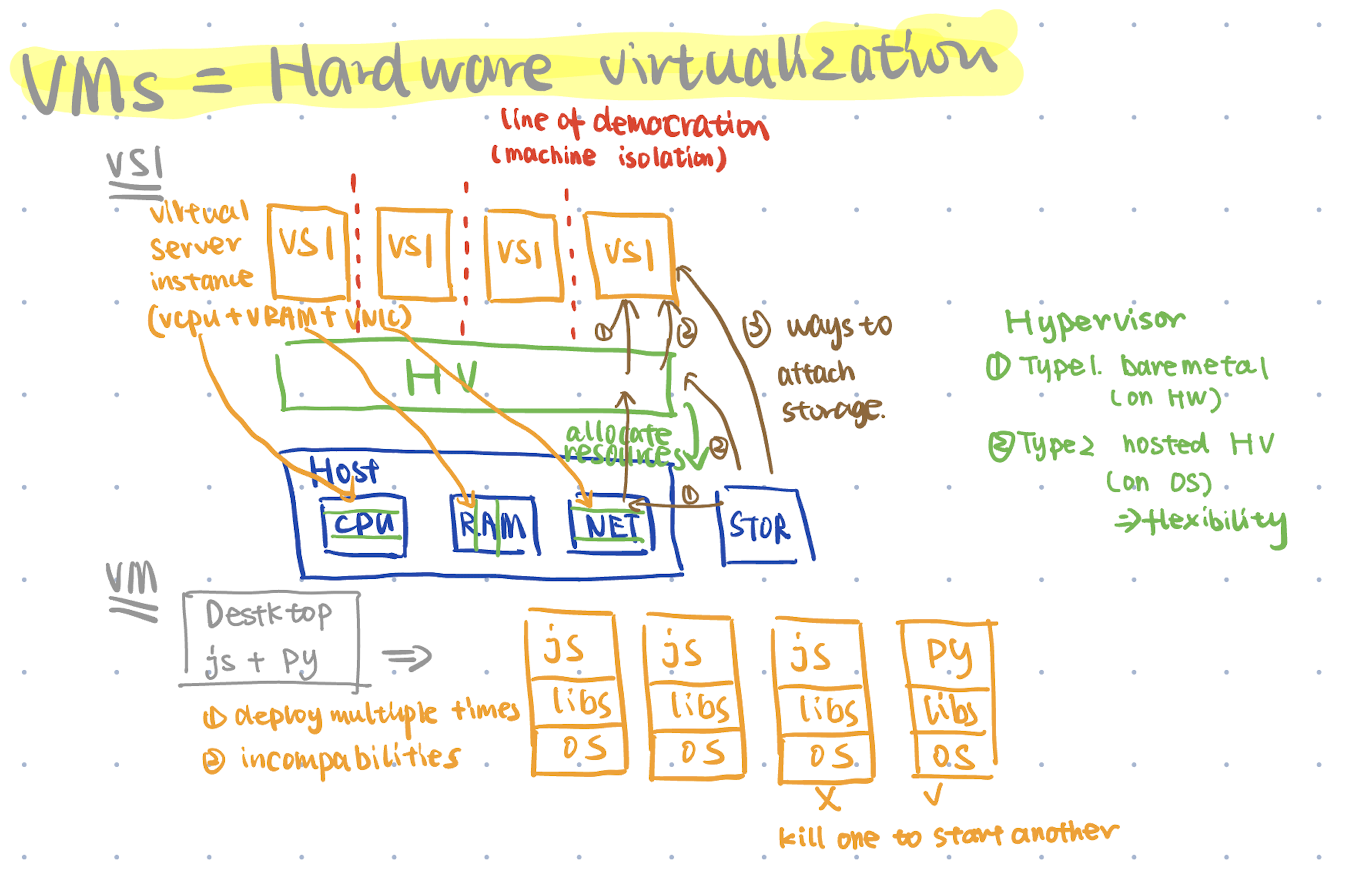 VMs = Hardware virtualization
line of democration
(machine isolation)
VSI
virtual
server
instance
(vcpu + VRAM + VNIC)
VSI
VSI
VSI
VSI
①
②
③ ways to
attach
storage.
HV
allocate
resources
②
①
Host
CPU
RAM
NET
STOR
Hypervisor
① Type1. bare metal
(on HW)
② Type2 hosted HV
(on OS)
⇒ flexibility
VM
Destktop
js + py
⇒
① deploy multiple times
② incompabilities
js
libs
OS
js
libs
OS
js
libs
OS
X
py
libs
OS
✓
kill one to start another